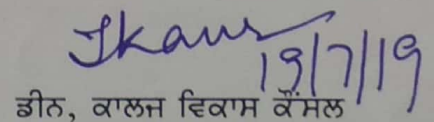 Jkaur
19/7/19
ਡੀਨ, ਕਾਲਜ ਵਿਕਾਸ ਕੌਂਸਲ